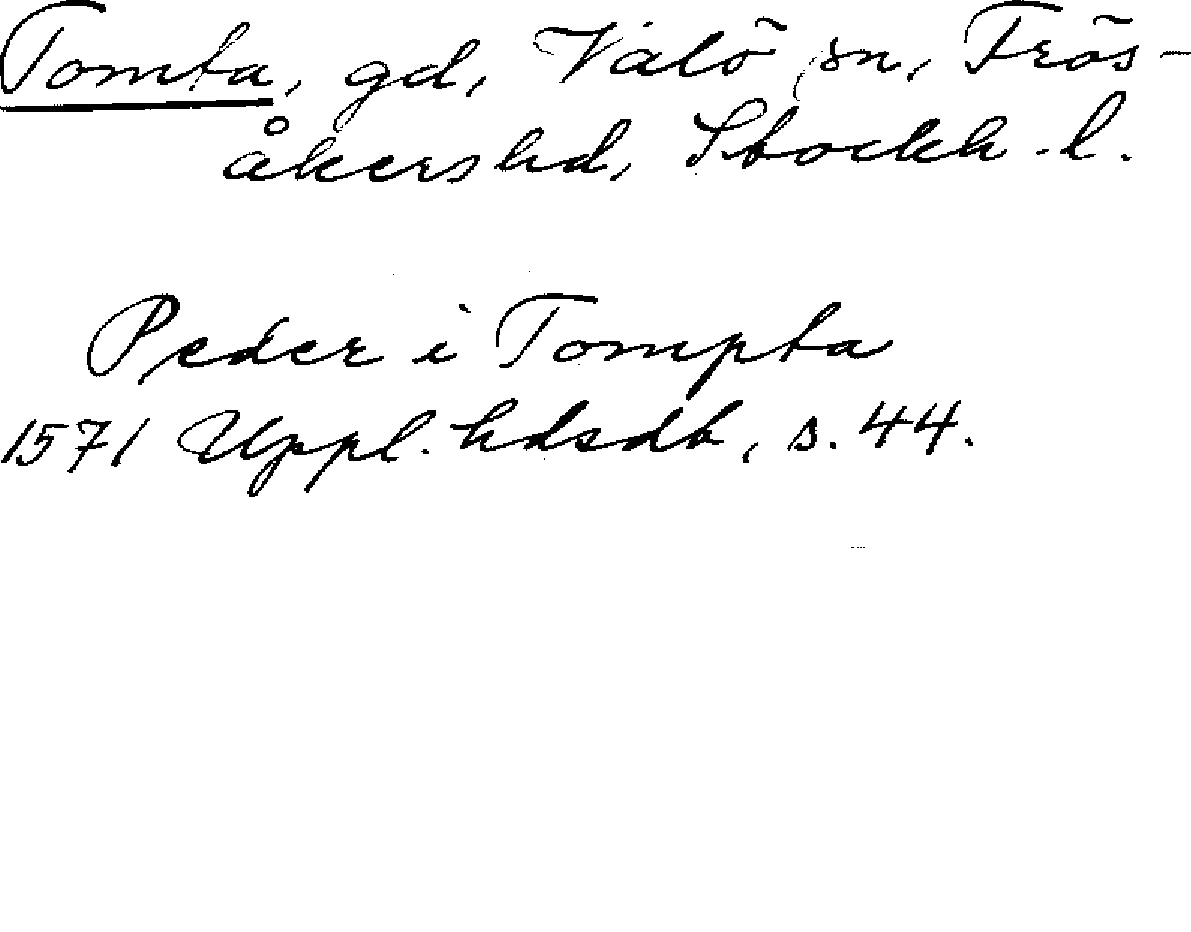 Tomta, gd, Valö sn, Frös-
åkers hd, Stockh. l.
Peder i Tompta
1571 Uppl. hdsdb, s. 44.